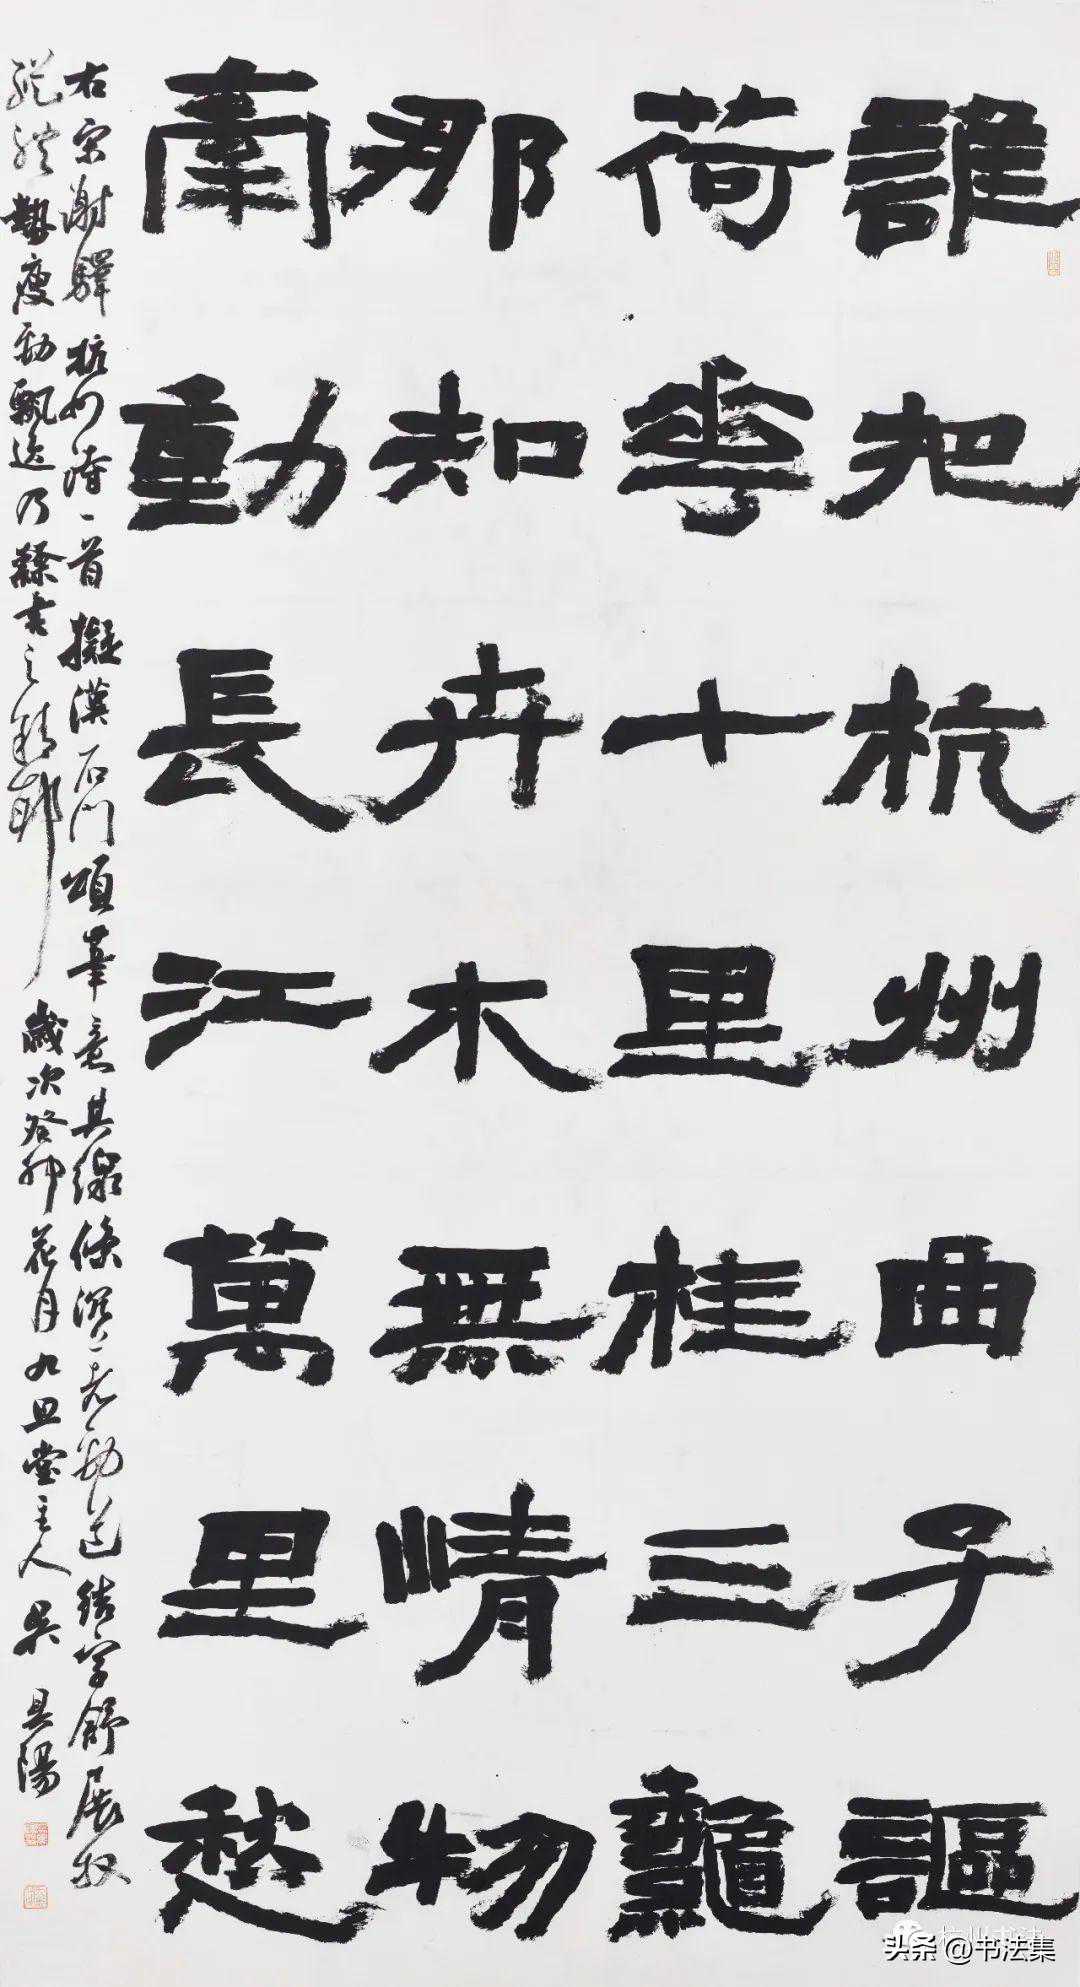 誰把杭州曲子謳
荷華十里桂三龝
那知卉木無情物
牽動長江萬里愁
右宋謝驛杭州詩一首擬漢石門頌筆意其線條勁道結字舒展放
縱體勢瘦勁飄逸乃隸書之精 歲次癸卯花月九且堂主人吳具陽
杭州书法
头条 @书法集